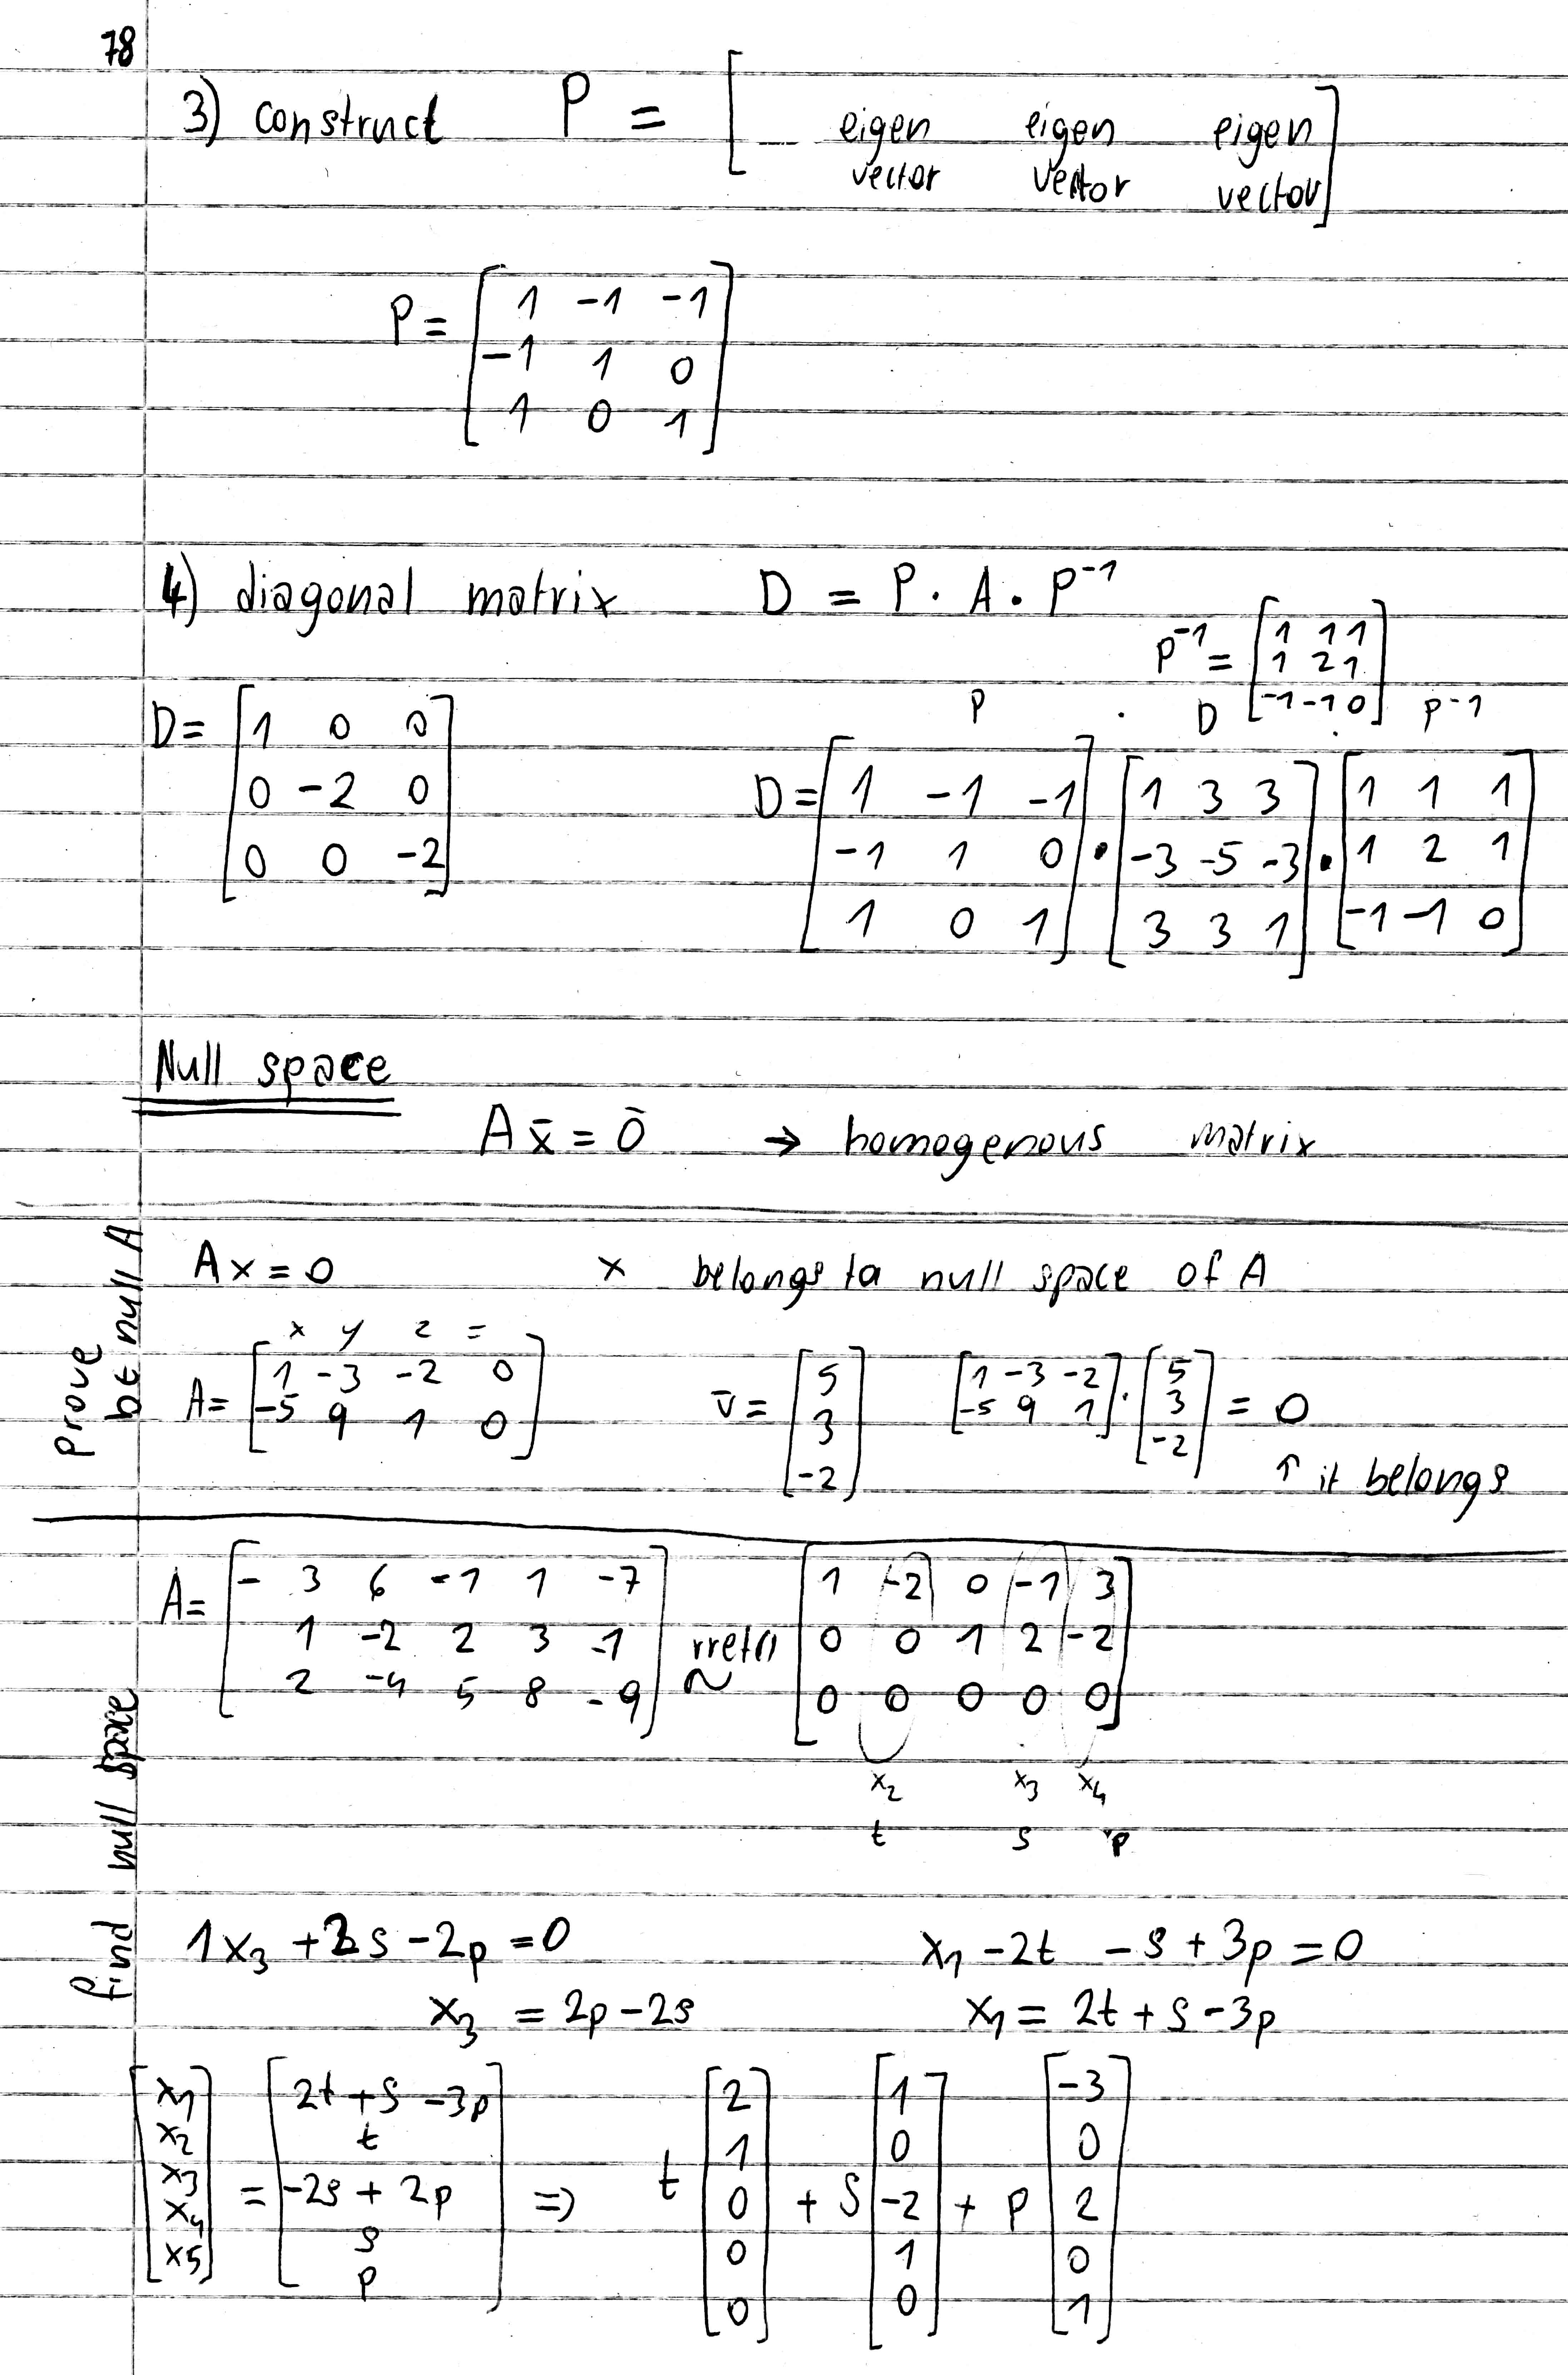 78
3) construct P = [ eigen vector eigen vector eigen vector ]
P = [ 1 -1 -1
-1 1 0
1 0 1 ]
4) diagonal matrix D = P · A · P⁻¹
P⁻¹ = [ 1 1 1
1 2 1
-1 -1 0 ]
D = [ 1 0 0
0 -2 0
0 0 -2 ]
P · D · P⁻¹
D = [ 1 -1 -1 ] · [ 1 3 3 ] · [ 1 1 1 ]
[ -1 1 0 ] [ -3 -5 -3 ] [ 1 2 1 ]
[ 1 0 1 ] [ 3 3 1 ] [ -1 -1 0 ]
Null space
A x̄ = ō → homogenous matrix
prove b ∈ null A
Ax = 0 x belongs to null space of A
x y z =
A = [ 1 -3 -2 0
-5 9 1 0 ]
v̄ = [ 5
3
-2 ]
[ 1 -3 -2
-5 9 1 ] · [ 5
3
-2 ] = 0
↑ it belongs
find null space
A = [ - 3 6 -1 1 -7
1 -2 2 3 -1
2 -4 5 8 -9 ]
rref() ~
[ 1 -2 0 -1 3
0 0 1 2 -2
0 0 0 0 0 ]
x₂ x₃ x₄
t s p
1x₃ + 2s - 2p = 0 x₁ - 2t - s + 3p = 0
x₃ = 2p - 2s x₁ = 2t + s - 3p
[ x₁
x₂
x₃
x₄
x₅ ] = [ 2t + s - 3p
t
-2s + 2p
s
p ] ⇒ t [ 2
1
0
0
0 ] + s [ 1
0
-2
1
0 ] + p [ -3
0
2
0
1 ]